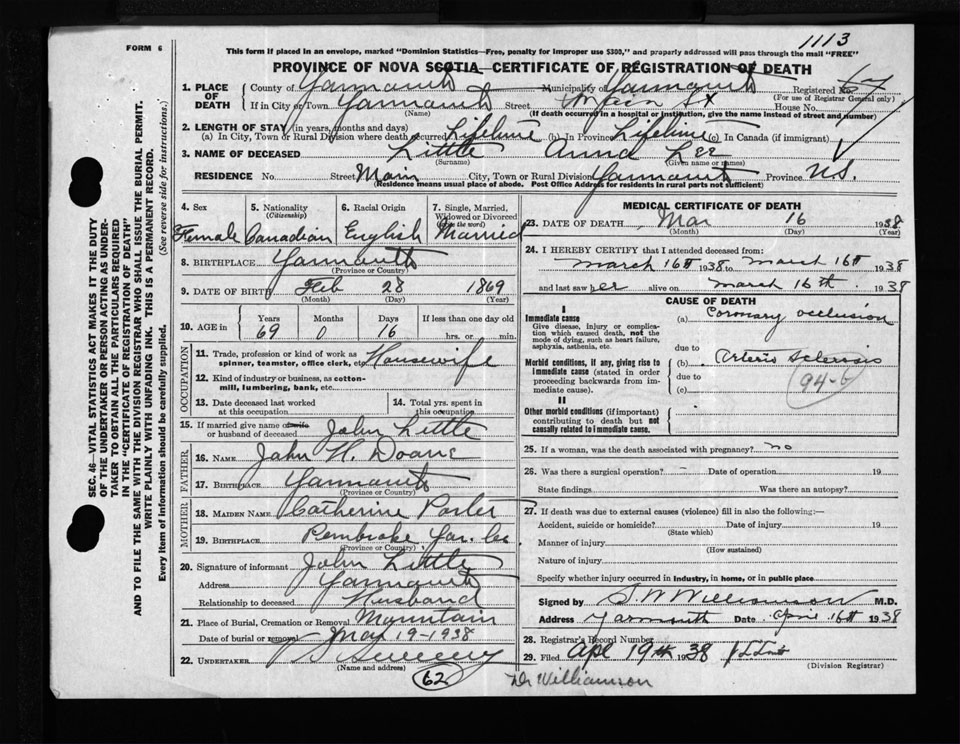 FORM 6
1113
This form if placed in an envelope, marked "Dominion Statistics—Free, penalty for improper use $300," and properly addressed will pass through the mail "FREE"
PROVINCE OF NOVA SCOTIA—CERTIFICATE OF REGISTRATION OF DEATH
1. PLACE OF DEATH
County of Yarmouth Municipality of Yarmouth Registered No.
(For use of Registrar General only)
If in City or Town Yarmouth Street Main St House No.
(Name) (If death occurred in a hospital or institution, give the name instead of street and number)
2. LENGTH OF STAY (in years, months and days)
(a) In City, Town or Rural Division where death occurred Lifetime (b) In Province Lifetime (c) In Canada (if immigrant)
3. NAME OF DECEASED Little Anna Lee
(Surname) (Given name or names)
RESIDENCE No. Street Main City, Town or Rural Division Yarmouth Province N.S.
(Residence means usual place of abode. Post Office Address for residents in rural parts not sufficient)
4. Sex Female
5. Nationality (Citizenship) Canadian
6. Racial Origin English
7. Single, Married, Widowed or Divorced (write the word) Married
8. BIRTHPLACE Yarmouth
(Province or Country)
9. DATE OF BIRTH Feb 28 1869
(Month) (Day) (Year)
10. AGE in Years Months Days If less than one day old
69 0 16 hrs. or min.
OCCUPATION
11. Trade, profession or kind of work as spinner, teamster, office clerk, etc. Housewife
12. Kind of industry or business, as cotton-mill, lumbering, bank, etc.
13. Date deceased last worked at this occupation
14. Total yrs. spent in this occupation
15. If married give name of wife or husband of deceased John Little
FATHER
16. NAME John H. Doane
17. BIRTHPLACE Yarmouth
(Province or Country)
MOTHER
18. MAIDEN NAME Catherine Porter
19. BIRTHPLACE Pembroke Yar. Co.
(Province or Country)
20. Signature of informant John Little
Address Yarmouth
Relationship to deceased Husband
21. Place of Burial, Cremation or Removal Mountain
Date of burial or removal Mar 19-1938
22. UNDERTAKER Sweeny
(Name and address)
62
MEDICAL CERTIFICATE OF DEATH
23. DATE OF DEATH Mar 16 1938
(Month) (Day) (Year)
24. I HEREBY CERTIFY that I attended deceased from:
March 16th 1938 to March 16th 1938
and last saw her alive on March 16th. 1938
CAUSE OF DEATH
I
Immediate cause (a) Coronary occlusion
Give disease, injury or complication which caused death, not the mode of dying, such as heart failure, asphyxia, asthenia, etc.
due to
Morbid conditions, if any, giving rise to immediate cause (stated in order proceeding backwards from immediate cause). (b) Arterio Sclerosis
due to
(c)
94-b
II
Other morbid conditions (if important) contributing to death but not causally related to immediate cause.
25. If a woman, was the death associated with pregnancy? no
26. Was there a surgical operation? – Date of operation 19
State findings Was there an autopsy?
27. If death was due to external causes (violence) fill in also the following:—
Accident, suicide or homicide? Date of injury 19
(State which)
Manner of injury
(How sustained)
Nature of injury
Specify whether injury occurred in industry, in home, or in public place
Signed by S. W. Williamson M.D.
Address Yarmouth Date April 16th 1938
28. Registrar's Record Number
29. Filed Apl 19th 1938
(Division Registrar)
Dr Williamson
SEC. 46—VITAL STATISTICS ACT MAKES IT THE DUTY
OF THE UNDERTAKER OR PERSON ACTING AS UNDER-
TAKER TO OBTAIN ALL THE PARTICULARS REQUIRED
IN THE "CERTIFICATE OF REGISTRATION OF DEATH"
AND TO FILE THE SAME WITH THE DIVISION REGISTRAR WHO SHALL ISSUE THE BURIAL PERMIT.
WRITE PLAINLY WITH UNFADING INK. THIS IS A PERMANENT RECORD.
Every item of information should be carefully supplied. (See reverse side for instructions.)